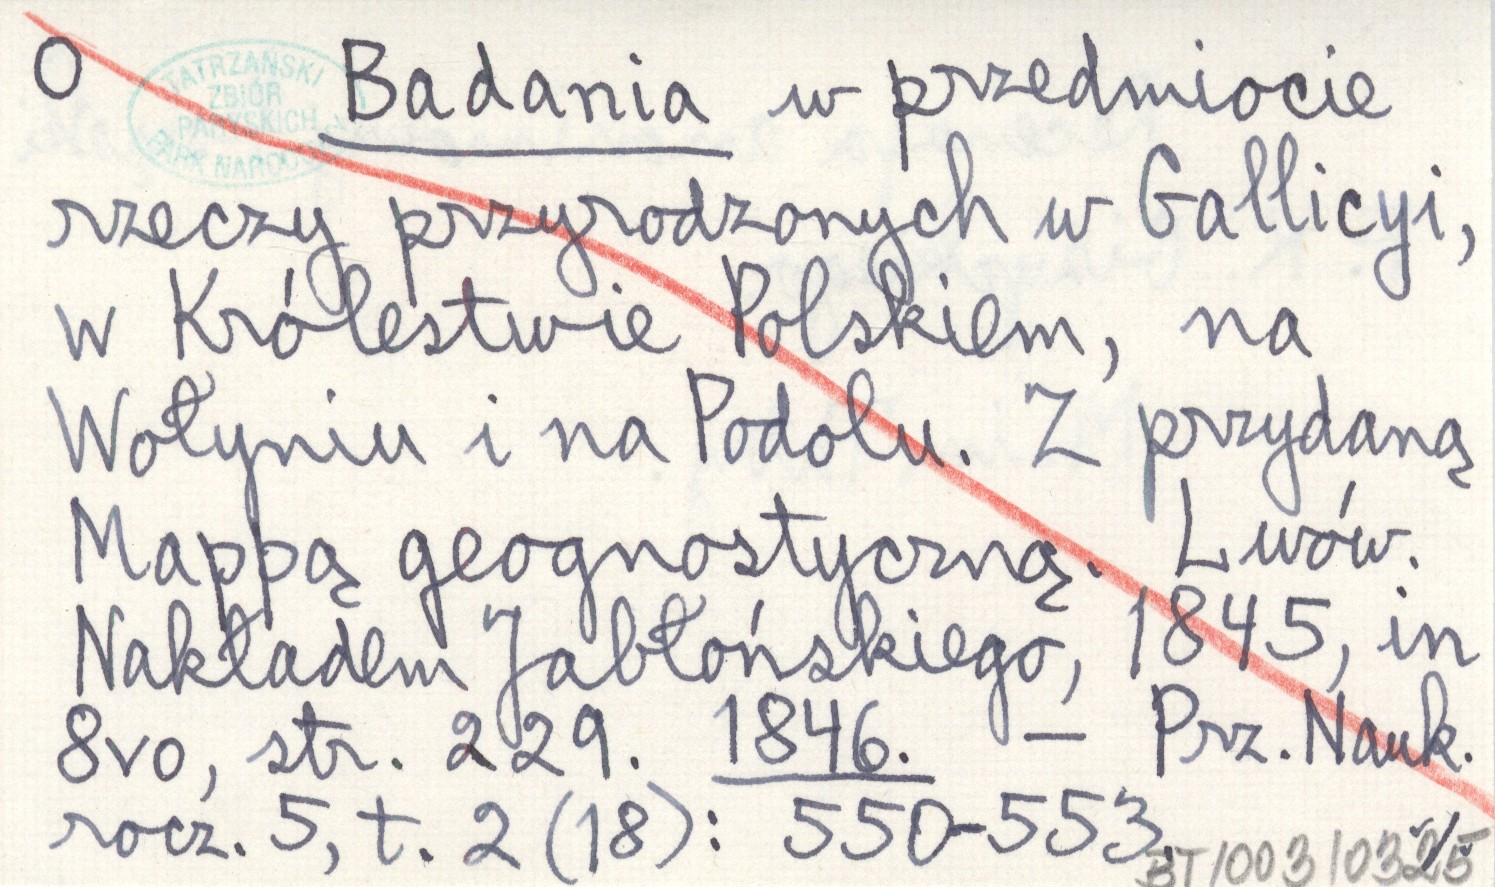 O Badania w przedmiocie
rzeczy przyrodzonych w Gallicyi,
w Królestwie Polskiem, na
Wołyniu i na Podolu. Z przydaną
Mappą geognostyczną. Lwów.
Nakładem Jabłońskiego, 1845, in
8vo, str. 229. 1846. — Prz. Nauk.
rocz. 5, t. 2 (18): 550-553.
TATRZAŃSKI
ZBIÓR
PARK NARODOWY
BT/003/032/5